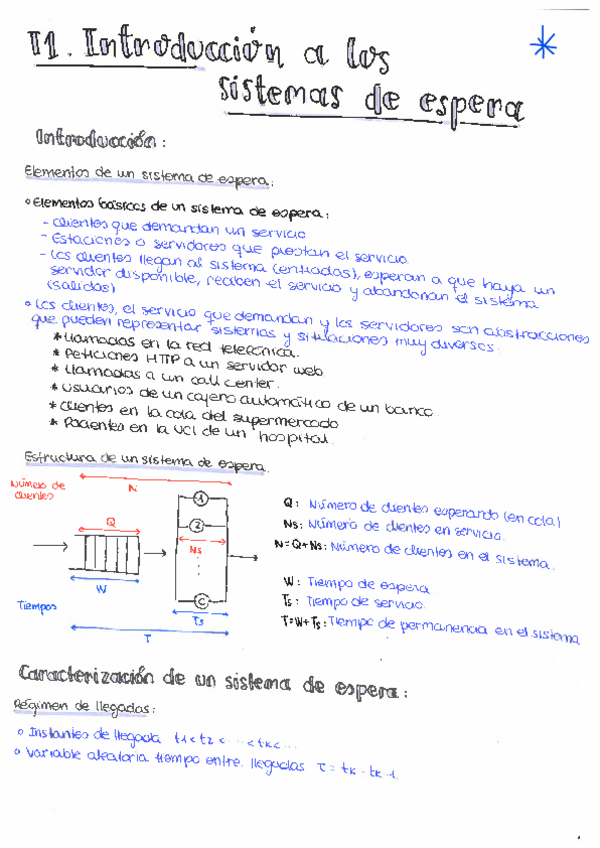 T1. Introducción a los
sistemas de espera
Introducción:
Elementos de un sistema de espera:
Elementos básicos de un sistema de espera:
- Clientes que demandan un servicio
- Estaciones o servidores que prestan el servicio
- Los clientes llegan al sistema (entradas), esperan a que haya un
servidor disponible, reciben el servicio y abandonan el sistema
(salidas)
Los clientes, el servicio que demandan y los servidores son abstracciones
que pueden representar sistemas y situaciones muy diversos.
* Llamadas en la red telefónica.
* Peticiones HTTP a un servidor web
* Llamadas a un call center.
* Usuarios de un cajero automático de un banco
* Clientes en la cola del supermercado
* Pacientes en la UCI de un hospital.
Estructura de un sistema de espera.
Número de
clientes
N
Q
1
2
Ns
C
W
Ts
Tiempos
T
Q: Número de clientes esperando (en cola)
Ns: Número de clientes en servicio.
N=Q+Ns: Número de clientes en el sistema.
W: Tiempo de espera
Ts: Tiempo de servicio.
T=W+Ts: Tiempo de permanencia en el sistema
Caracterización de un sistema de espera:
Régimen de llegadas:
Instantes de llegada t1<t2<...<tk<...
Variable aleatoria tiempo entre llegadas τ = tk - tk-1.